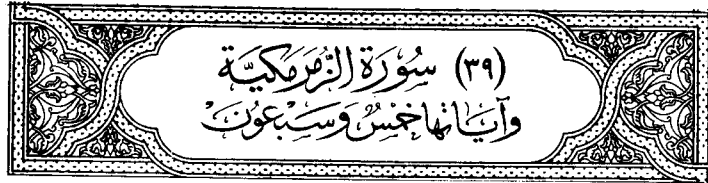 (٣٩) سُورَةُ الزُّمَرِ مَكِيَّة
وَآيَاتُهَا خَمْسٌ وَسَبْعُونَ